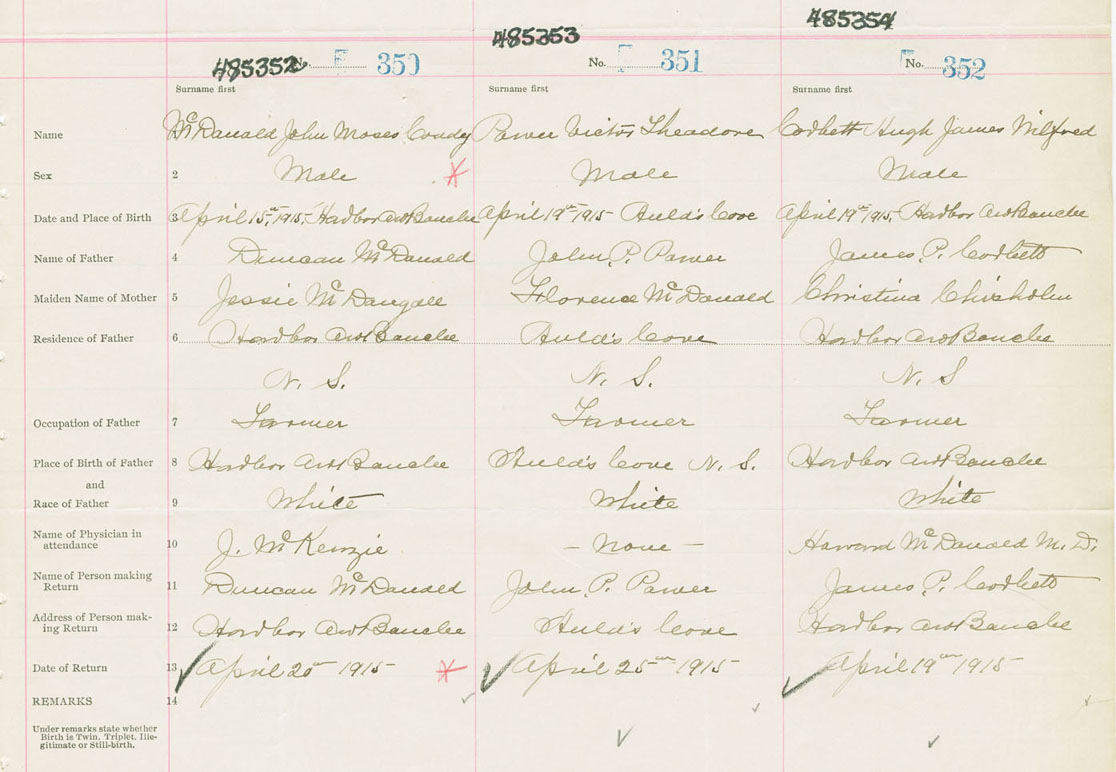 485352 485353 485354
F 350 No. F 351 No. F 352
Surname first Surname first Surname first
Name McDonald John Moses Condy Power Victor Theadore Corbett Hugh James Wilfred
Sex 2 Male Male Male
Date and Place of Birth 3 April 15th 1915, Harbor au Bouche April 19th 1915 Auld's Cove April 19th 1915, Harbor au Bouche
Name of Father 4 Duncan McDonald John P. Power James P. Corbett
Maiden Name of Mother 5 Jessie McDougall Florence McDonald Christina Chisholm
Residence of Father 6 Harbor au Bouche Auld's Cove Harbor au Bouche
N. S. N. S. N. S
Occupation of Father 7 Farmer Farmer Farmer
Place of Birth of Father 8 Harbor au Bouche Auld's Cove N. S. Harbor au Bouche
and
Race of Father 9 White White White
Name of Physician in
attendance 10 J. McKenzie - None - Howard McDonald M. D.
Name of Person making
Return 11 Duncan McDonald John P. Power James P. Corbett
Address of Person mak-
ing Return 12 Harbor au Bouche Auld's Cove Harbor au Bouche
Date of Return 13 April 20th 1915 April 25th 1915 April 19th 1915
REMARKS 14
Under remarks state whether
Birth is Twin. Triplet. Ille-
gitimate or Still-birth.